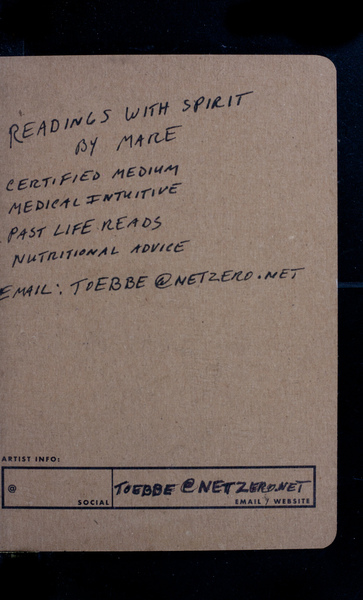 READINGS WITH SPIRIT
BY MARE
CERTIFIED MEDIUM
MEDICAL INTUITIVE
PAST LIFE READS
NUTRITIONAL ADVICE
EMAIL: TOEBBE @NETZERO.NET
ARTIST INFO:
@
SOCIAL
TOEBBE @NETZERO.NET
EMAIL / WEBSITE